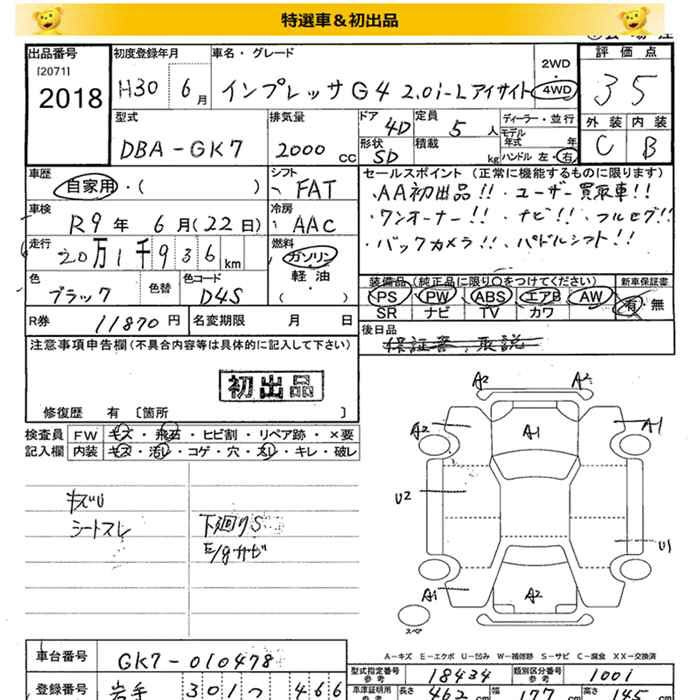 特選車＆初出品
出品番号
[2071]
2018
初度登録年月
H30 6月
車名・グレード
インプレッサ G4 2.0i-L アイサイト
2WD
4WD
評価点
35
外装 内装
C B
型式
DBA-GK7
排気量
2000 cc
ドア
4D
形状
SD
定員
5 人
積載
kg
ディーラー・並行
モデル年式 年
ハンドル 左・右
車歴
自家用・( )
シフト
FAT
セールスポイント (正常に機能するものに限ります)
・AA初出品!!・ユーザー買取車!!
・ワンオーナー!!・ナビ!!・フルセグ!!
・バックカメラ!!・パドルシフト!!
車検
R9年 6月(22日)
冷房
AAC
走行
20万1千936km
燃料
ガソリン
軽油
( )
色
ブラック
色替
色コード
D4S
装備品 (純正品に限り○をつけてください)
PS PW ABS エアB AW
SR ナビ TV カワ
新車保証書
有 無
R券 11870円
名変期限 月 日
後日品
保証書、取説
注意事項申告欄(不具合内容等は具体的に記入して下さい)
初出品
修復歴 有 〔箇所 〕
検査員記入欄
FW キズ・飛石・ヒビ割・リペア跡・×要
内装 キズ・汚レ・コゲ・穴・スレ・キレ・破レ
キズU
シートスレ
下廻りS
E/gサビ
A2 A2
A2 A1 A1
U2
U1
A1 A2
スペア
A-キズ E-エクボ U-凹み W-補修跡 S-サビ C-腐食 XX-交換済
車台番号
GK7-010478
型式指定番号 参考
18434
類別区分番号 参考
1001
登録番号
岩手 301 つ 466
車庫証明用 参考
長さ 462 cm 幅 177 cm 高さ 145 cm